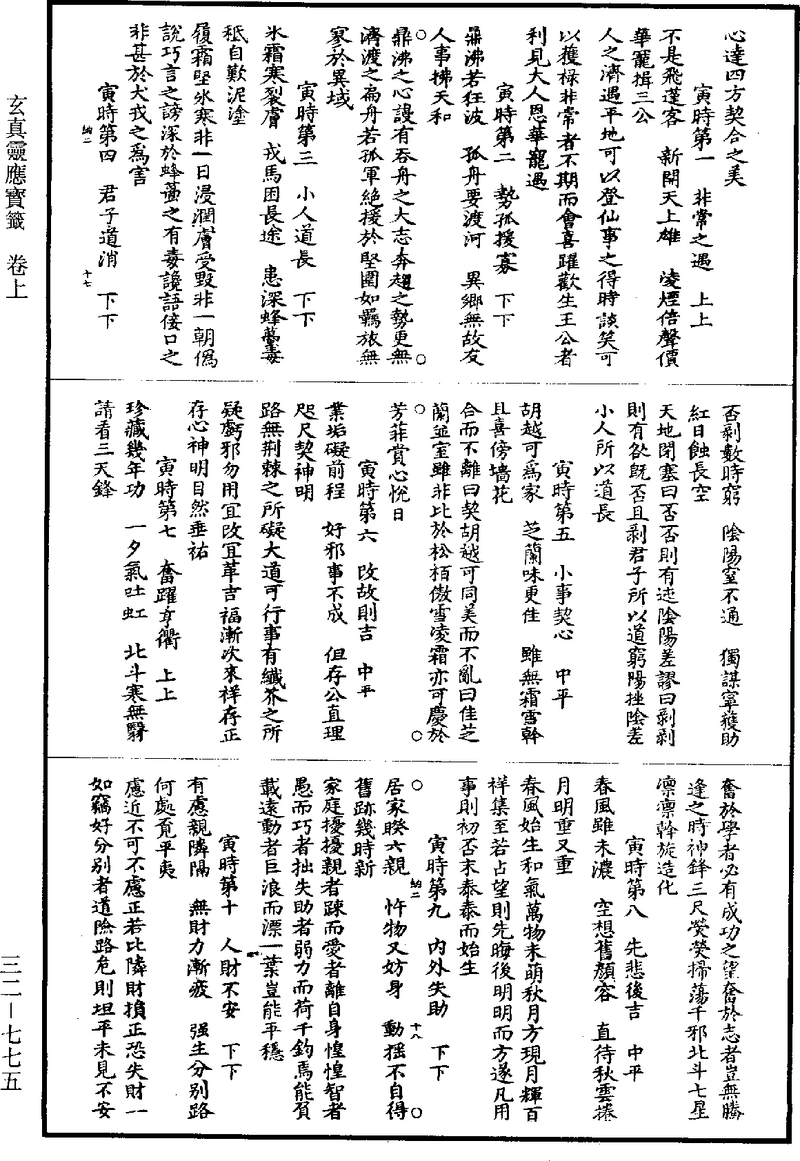 心達四方契合之美
寅時第一　非常之遇　上上
不是飛蓬客　新開天上雄　凌煙倍聲價
華寵揖三公
人之濟遇平地可以登仙事之得時談笑可
以獲祿非常者不期而會喜躍歡生王公者
利見大人恩華寵遇
寅時第二　勢孤援寡　下下
鼎沸若狂波　孤舟要渡河　異鄉無故友
人事拂天和
鼎沸之心設有吞舟之大志奔趨之勢更無
濟渡之扁舟若孤軍絕援於堅圍如羈旅無
家於異域
寅時第三　小人道長　下下
氷霜寒裂膚　戎馬困長途　患深蜂蠆毒
秪自歎泥塗
履霜堅氷寒非一日浸潤膚受毀非一朝僞
說巧言之謗深於蜂蠆之有毒讒語佞口之
非甚於犬戎之爲害
寅時第四　君子道消　下下
納二
十七
否剝數時窮　陰陽窒不通　獨謀寧獲助
紅日蝕長空
天地閉塞曰否否則有迍陰陽差謬曰剝剝
則有欲旣否且剝君子所以道窮陽挫陰差
小人所以道長
寅時第五　小事契心　中平
胡越可爲家　芝蘭味更佳　雖無霜雪幹
且喜傍墻花
合而不離曰契胡越可同美而不亂曰佳芝
蘭並室雖非比於松栢傲雪凌霜亦可慶於
芳菲賞心悅日
寅時第六　改故則吉　中平
業垢礙前程　好邪事不成　但存公直理
咫尺契神明
路無荆棘之所礙大道可行事有纖芥之所
疑虧邪勿用宜改宜革吉福漸次來祥存正
存心神明自然垂祐
寅時第七　奮躍亨衢　上上
珍藏幾年功　一夕氣吐虹　北斗寒無翳
請看三天鋒
奮於學者必有成功之望奮於志者豈無騰
逢之時神鋒三尺熒熒掃蕩千邪北斗七星
凛凛斡旋造化
寅時第八　先悲後吉　中平
春風雖未濃　空想舊顏容　直待秋雲捲
月明重又重
春風始生和氣萬物未萌秋月方現月輝百
祥集至若占望則先晦後明明而方遂凡用
事則初否末泰泰而始生
寅時第九　內外失助　下下
居家睽六親　忤物又妨身　動搖不自得
納二
十八
舊跡幾時新
家庭擾擾親者踈而愛者離自身惶惶智者
愚而巧者拙失助者弱力而荷千鈞焉能負
載遠動者巨浪而漂一葉豈能平穩
寅時第十　人財不安　下下
有慮親隣隔　無財力漸疲　强生分別路
何處覓平夷
慮近不可不應正若比隣財損正恐失財一
如竊好分別者道險路危則坦平未見不安
玄真靈應寶籤　卷上
三二－七七五